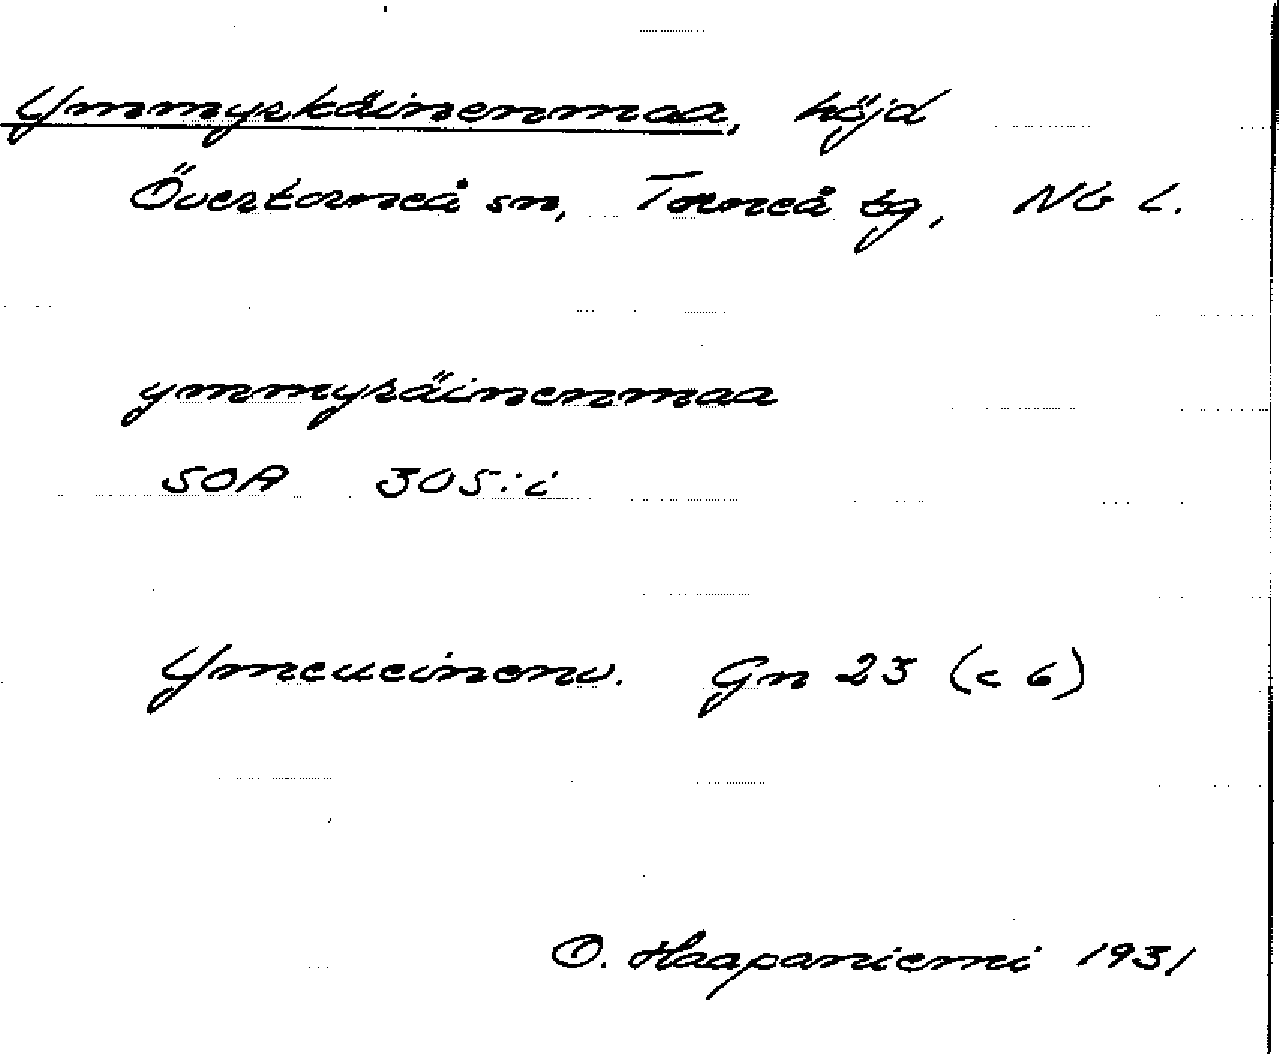 Ymmyrkäinenmaa, höjd
Övertorneå sn, Torneå tg, NB L.
ymmyräinenmaa
SOA 305:i
Gn 23 (c 6)
O. Haapaniemi 1931